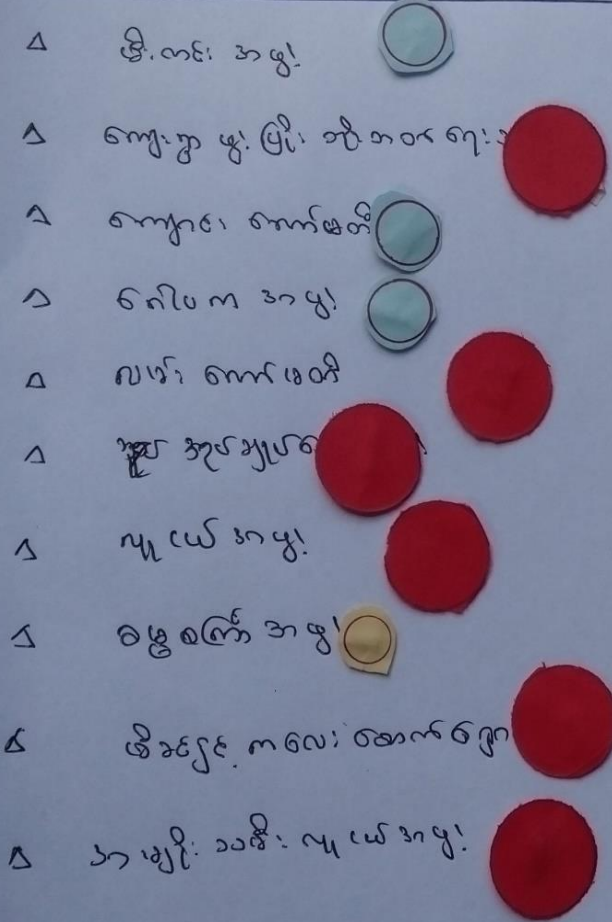 မီးလင်း အဖွဲ့
ကျေးရွာ ဖွံ့ဖြိုး
ကျောင်း ကော်မတီ
ဂေါပက အဖွဲ့
လမ်း ကော်မတီ
အုပ်ချုပ်
လူငယ်အဖွဲ့
ဓမ္မစကြာ အဖွဲ့
မိခင်နှင့် ကလေး စောက်ရှောက်
အမျိုးသမီး လူငယ်အဖွဲ့